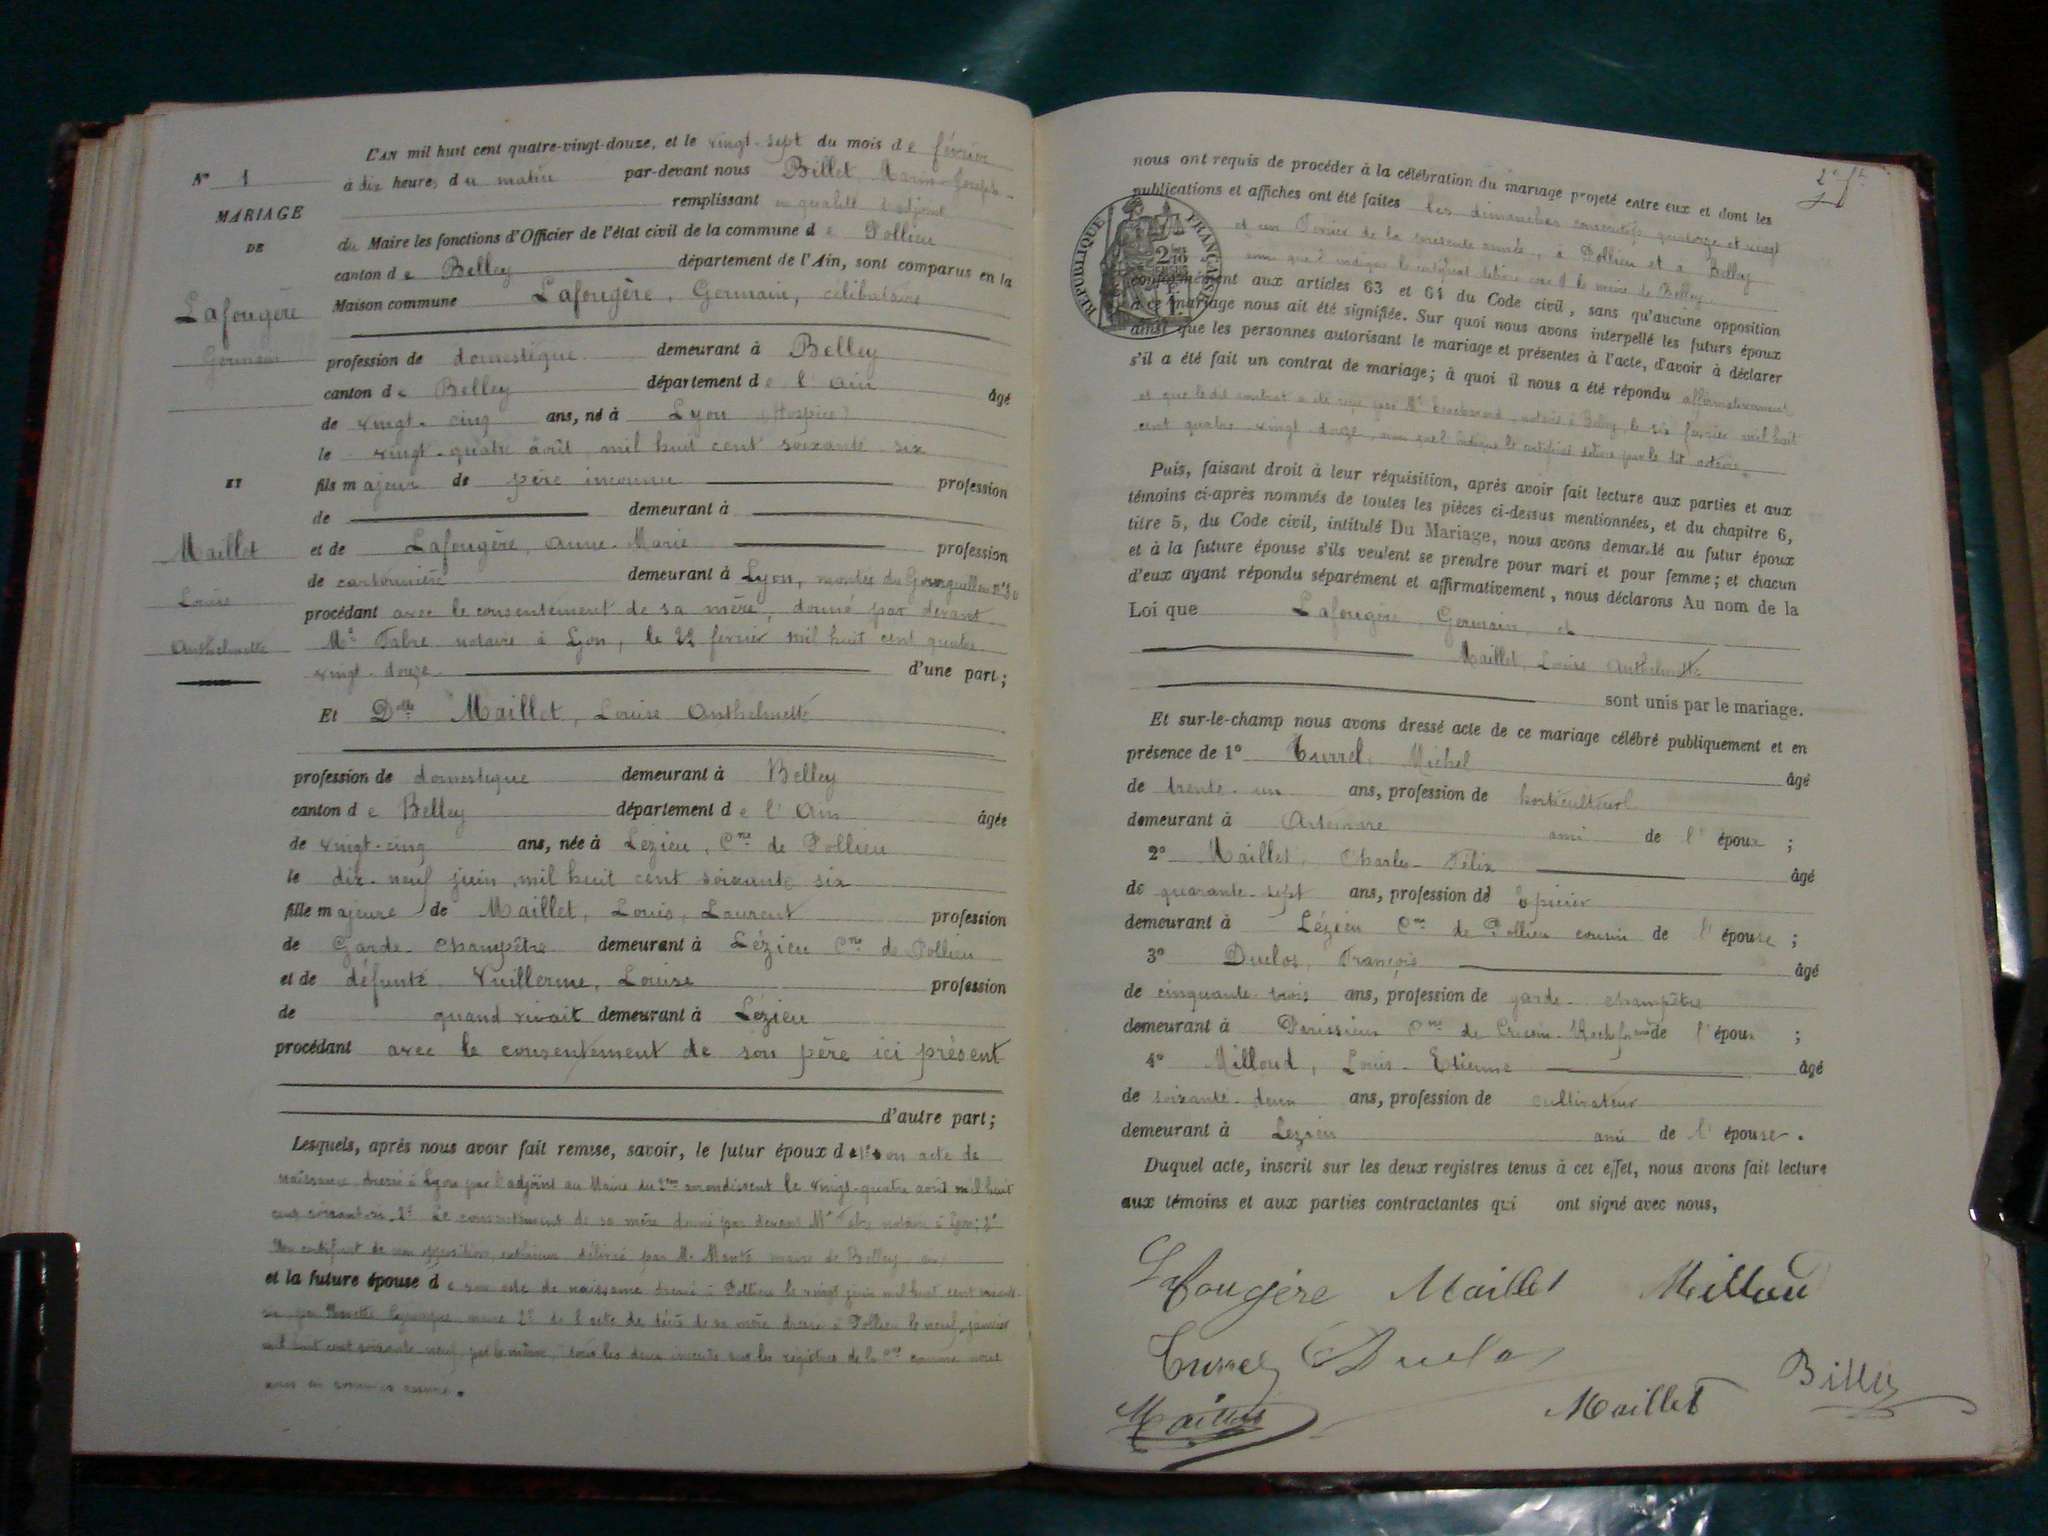 N° 1
MARIAGE
DE
Lafougère
Germain
ET
Maillet
Louise
Anthelmette
L'AN mil huit cent quatre-vingt-douze, et le vingt-sept du mois de février
à dix heures du matin par-devant nous Billet Marin-Joseph
remplissant en qualité d'adjoint
du Maire les fonctions d'Officier de l'état civil de la commune de Pollieu
canton de Belley département de l'Ain, sont comparus en la
Maison commune Lafougère, Germain, célibataire
profession de domestique demeurant à Belley
canton de Belley département de l'Ain âgé
de vingt-cinq ans, né à Lyon (Hospice)
le vingt-quatre août mil huit cent soixante-six
fils majeur de père inconnu profession
de demeurant à
et de Lafougère, Anne-Marie profession
de cartonnière demeurant à Lyon, montée du Gourguillon n°30
procédant avec le consentement de sa mère, donné par devant
Me Fabre notaire à Lyon, le 22 février mil huit cent quatre
vingt-douze d'une part;
Et Dlle Maillet, Louise Anthelmette
profession de domestique demeurant à Belley
canton de Belley département de l'Ain âgée
de vingt-cinq ans, née à Lézieu, Cne de Pollieu
le dix-neuf juin mil huit cent soixante six
fille majeure de Maillet, Louis, Laurent profession
de Garde-Champêtre demeurant à Lézieu Cne de Pollieu
et de défunte Vuillerme, Louise profession
de quand vivait demeurant à Lézieu
procédant avec le consentement de son père ici présent
d'autre part;
Lesquels, après nous avoir fait remise, savoir, le futur époux de 1° son acte de
naissance dressé à Lyon par l'adjoint au Maire du 2me arrondissement le vingt-quatre août mil huit
cent soixante-six. 2° Le consentement de sa mère donné par devant Me Fabre notaire à Lyon; 3°
Un certificat de non opposition délivré par Mr maire de Belley
et la future épouse de son acte de naissance dressé à Pollieu le vingt juin mil huit cent soixante
six par maire 2° de l'acte de décès de sa mère dressé à Pollieu le neuf janvier
mil huit cent soixante neuf par le même, tous les deux inscrits sur les registres de la Cne comme nous
nous en sommes assuré.
2e ft
nous ont requis de procéder à la célébration du mariage projeté entre eux et dont les
publications et affiches ont été faites les dimanches consécutifs quatorze et vingt
et un Février de la présente année, à Pollieu et à Belley
ainsi que l'indique le certificat délivré par Mr le maire de Belley
conformément aux articles 63 et 64 du Code civil, sans qu'aucune opposition
à ce mariage nous ait été signifiée. Sur quoi nous avons interpellé les futurs époux
ainsi que les personnes autorisant le mariage et présentes à l'acte, d'avoir à déclarer
s'il a été fait un contrat de mariage; à quoi il nous a été répondu affirmativement
et que le dit contrat a été reçu par Me notaire à Belley, le six février mil huit
cent quatre-vingt-douze, ainsi que l'indique le certificat délivré par le dit notaire.
Puis, faisant droit à leur réquisition, après avoir fait lecture aux parties et aux
témoins ci-après nommés de toutes les pièces ci-dessus mentionnées, et du chapitre 6,
titre 5, du Code civil, intitulé Du Mariage, nous avons demandé au futur époux
et à la future épouse s'ils veulent se prendre pour mari et pour femme; et chacun
d'eux ayant répondu séparément et affirmativement, nous déclarons Au nom de la
Loi que Lafougère, Germain, et
Maillet, Louise Anthelmette
sont unis par le mariage.
Et sur-le-champ nous avons dressé acte de ce mariage célébré publiquement et en
présence de 1° Turrel, Michel âgé
de trente-un ans, profession de horticulteur
demeurant à Artemare ami de l'époux ;
2° Maillet, Charles-Félix âgé
de quarante-sept ans, profession de Epicier
demeurant à Lézieu Cne de Pollieu cousin de l'épouse ;
3° Duclos, François âgé
de cinquante-trois ans, profession de garde-champêtre
demeurant à Parissieu Cne de Cressin-Rochefort de l'époux ;
4° Milloud, Louis-Etienne âgé
de soixante-deux ans, profession de cultivateur
demeurant à Lézieu ami de l'épouse.
Duquel acte, inscrit sur les deux registres tenus à cet effet, nous avons fait lecture
aux témoins et aux parties contractantes qui ont signé avec nous,
Lafougère Maillet Milloud
Turrel Duclos
Maillet Billet
RÉPUBLIQUE FRANÇAISE